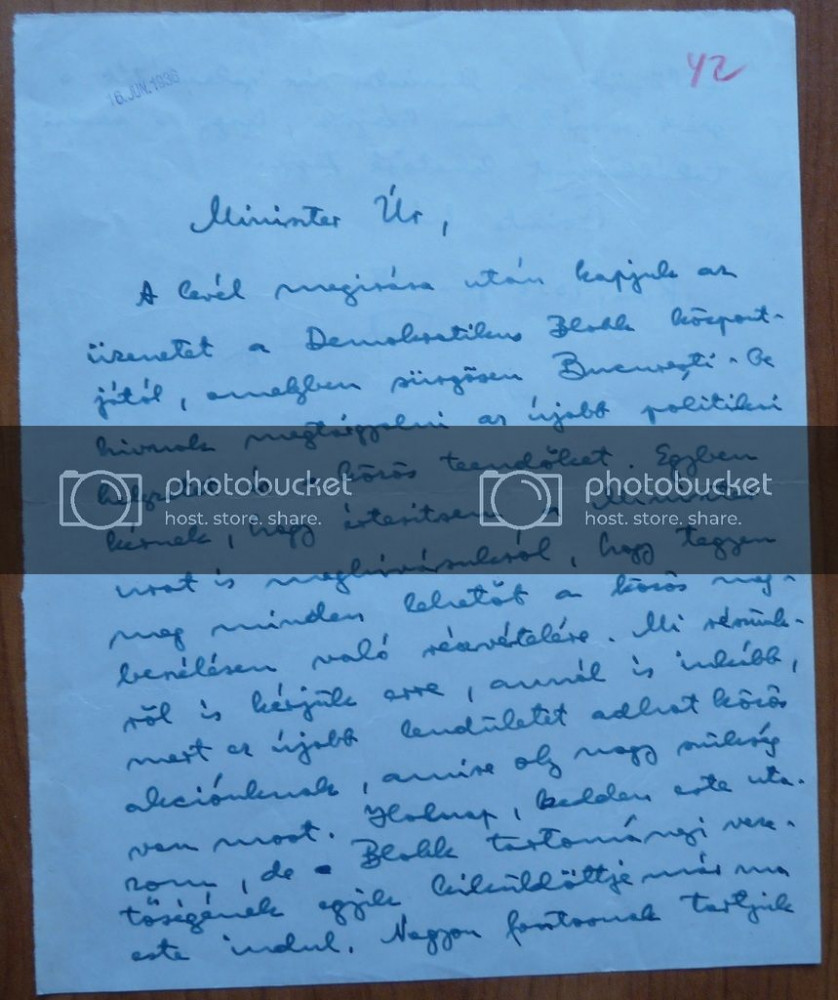 16.JUN.1936
42
Miniszter Úr,
A levél megírása után kapjuk az
üzenetet a Demokratikus Blokk központ-
jától, amelyben sürgősen București-be
hívnak megtárgyalni az újabb politikai
helyzetet és a közös teendőket. Egyben
photobucket photobucket
host. store. share. host. store. share.
kérnek, hogy értesítsem a Miniszter
urat is meghívásukról, hogy tegyen
meg minden lehetőt a közös meg-
beszélésen való részvételére. Mi részünk-
ről is kérjük erre, annál is inkább,
mert ez újabb lendületet adhat közös
akciónknak, amire oly nagy szükség
van most. Holnap, kedden este uta-
zom, de a Blokk tartományi veze-
tőségének egyik kiküldöttje már ma
este indul. Nagyon fontosnak tartjuk